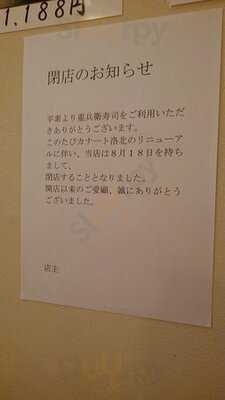 1,188円
閉店のお知らせ
平素より重兵衛寿司をご利用いただ
きありがとうございます。
このたびカナート洛北のリニューア
ルに伴い、当店は8月18日を持ち
まして、
閉店することとなりました。
開店以来のご愛顧、誠にありがとう
ございました。
店主